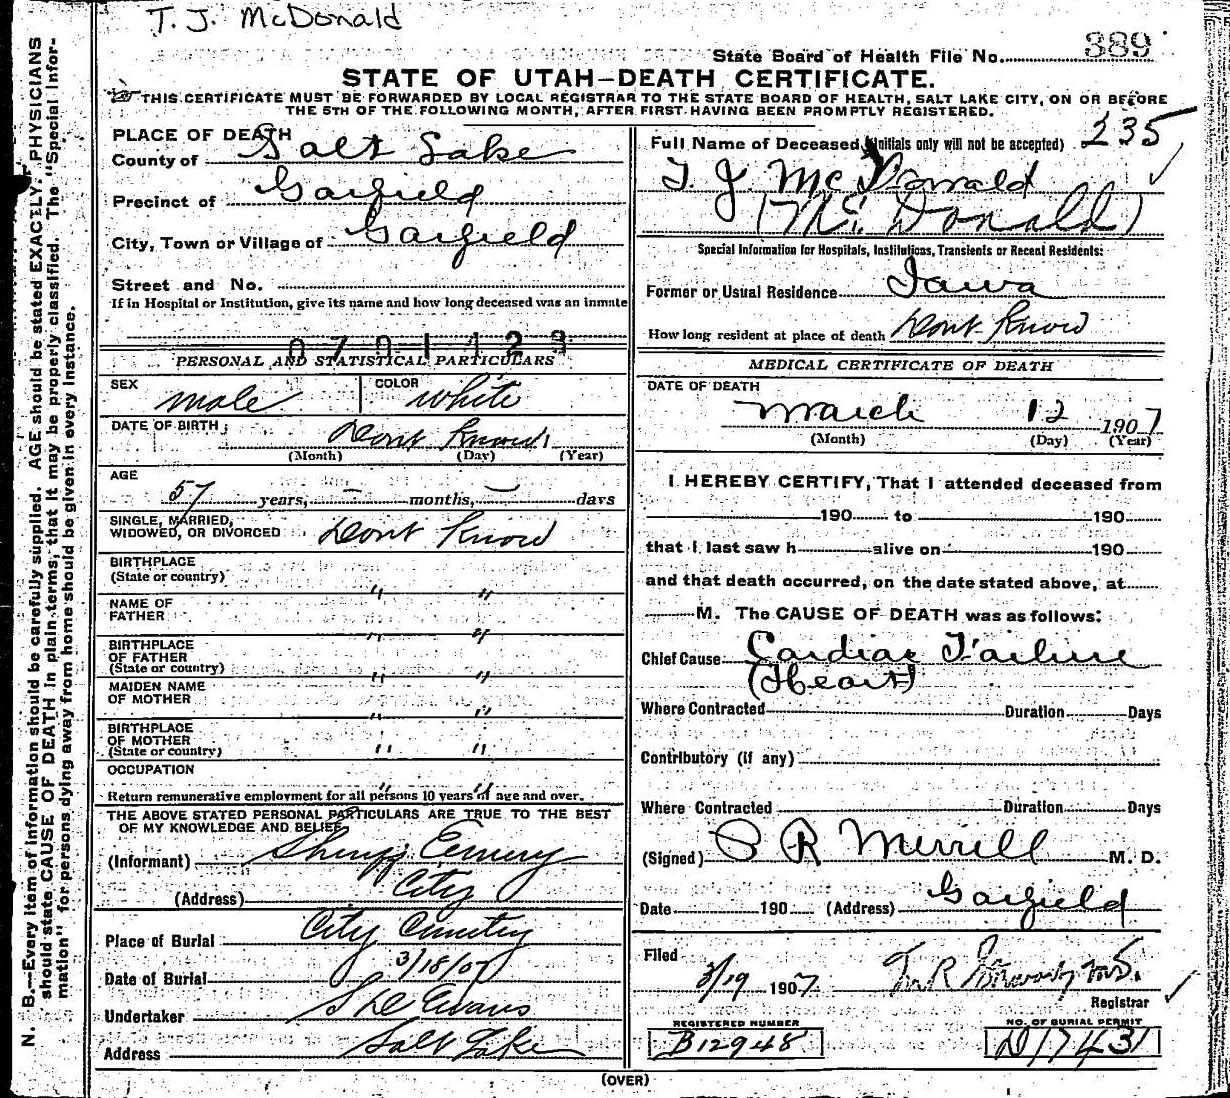 T. J. McDonald
State Board of Health File No. 389
STATE OF UTAH—DEATH CERTIFICATE.
THIS CERTIFICATE MUST BE FORWARDED BY LOCAL REGISTRAR TO THE STATE BOARD OF HEALTH, SALT LAKE CITY, ON OR BEFORE
THE 5TH OF THE FOLLOWING MONTH, AFTER FIRST HAVING BEEN PROMPTLY REGISTERED.
N. B.—Every item of information should be carefully supplied. AGE should be stated EXACTLY. PHYSICIANS
should state CAUSE OF DEATH in plain terms, that it may be properly classified. The "Special Infor-
mation" for persons dying away from home should be given in every instance.
PLACE OF DEATH
County of Salt Lake
Precinct of Garfield
City, Town or Village of Garfield
Street and No.
If in Hospital or Institution, give its name and how long deceased was an inmate
0701428
PERSONAL AND STATISTICAL PARTICULARS
SEX male COLOR white
DATE OF BIRTH Dont Know
(Month) (Day) (Year)
AGE
57 years, — months, — days
SINGLE, MARRIED,
WIDOWED, OR DIVORCED Dont Know
BIRTHPLACE
(State or country) " "
NAME OF
FATHER " "
BIRTHPLACE
OF FATHER
(State or country) " "
MAIDEN NAME
OF MOTHER " "
BIRTHPLACE
OF MOTHER
(State or country) " "
OCCUPATION
Return remunerative employment for all persons 10 years of age and over. " "
THE ABOVE STATED PERSONAL PARTICULARS ARE TRUE TO THE BEST
OF MY KNOWLEDGE AND BELIEF
(Informant) Sheriff Emery
(Address) City
Place of Burial City Cemetery
Date of Burial 3/18/07
Undertaker Evans
Address Salt Lake
Full Name of Deceased (Initials only will not be accepted) 235
T. J. McDonald
(McDonald)
Special Information for Hospitals, Institutions, Transients or Recent Residents:
Former or Usual Residence Iowa
How long resident at place of death Dont Know
MEDICAL CERTIFICATE OF DEATH
DATE OF DEATH
March 12 1907
(Month) (Day) (Year)
I HEREBY CERTIFY, That I attended deceased from
190 to 190
that I last saw h alive on 190
and that death occurred, on the date stated above, at
M. The CAUSE OF DEATH was as follows:
Chief Cause Cardiac Failure
(Heart)
Where Contracted Duration Days
Contributory (if any)
Where Contracted Duration Days
(Signed) R Merrill M. D.
Date 190 (Address) Garfield
Filed
3/19 1907
Registrar
REGISTERED NUMBER NO. OF BURIAL PERMIT
B12948 D17431
(OVER)